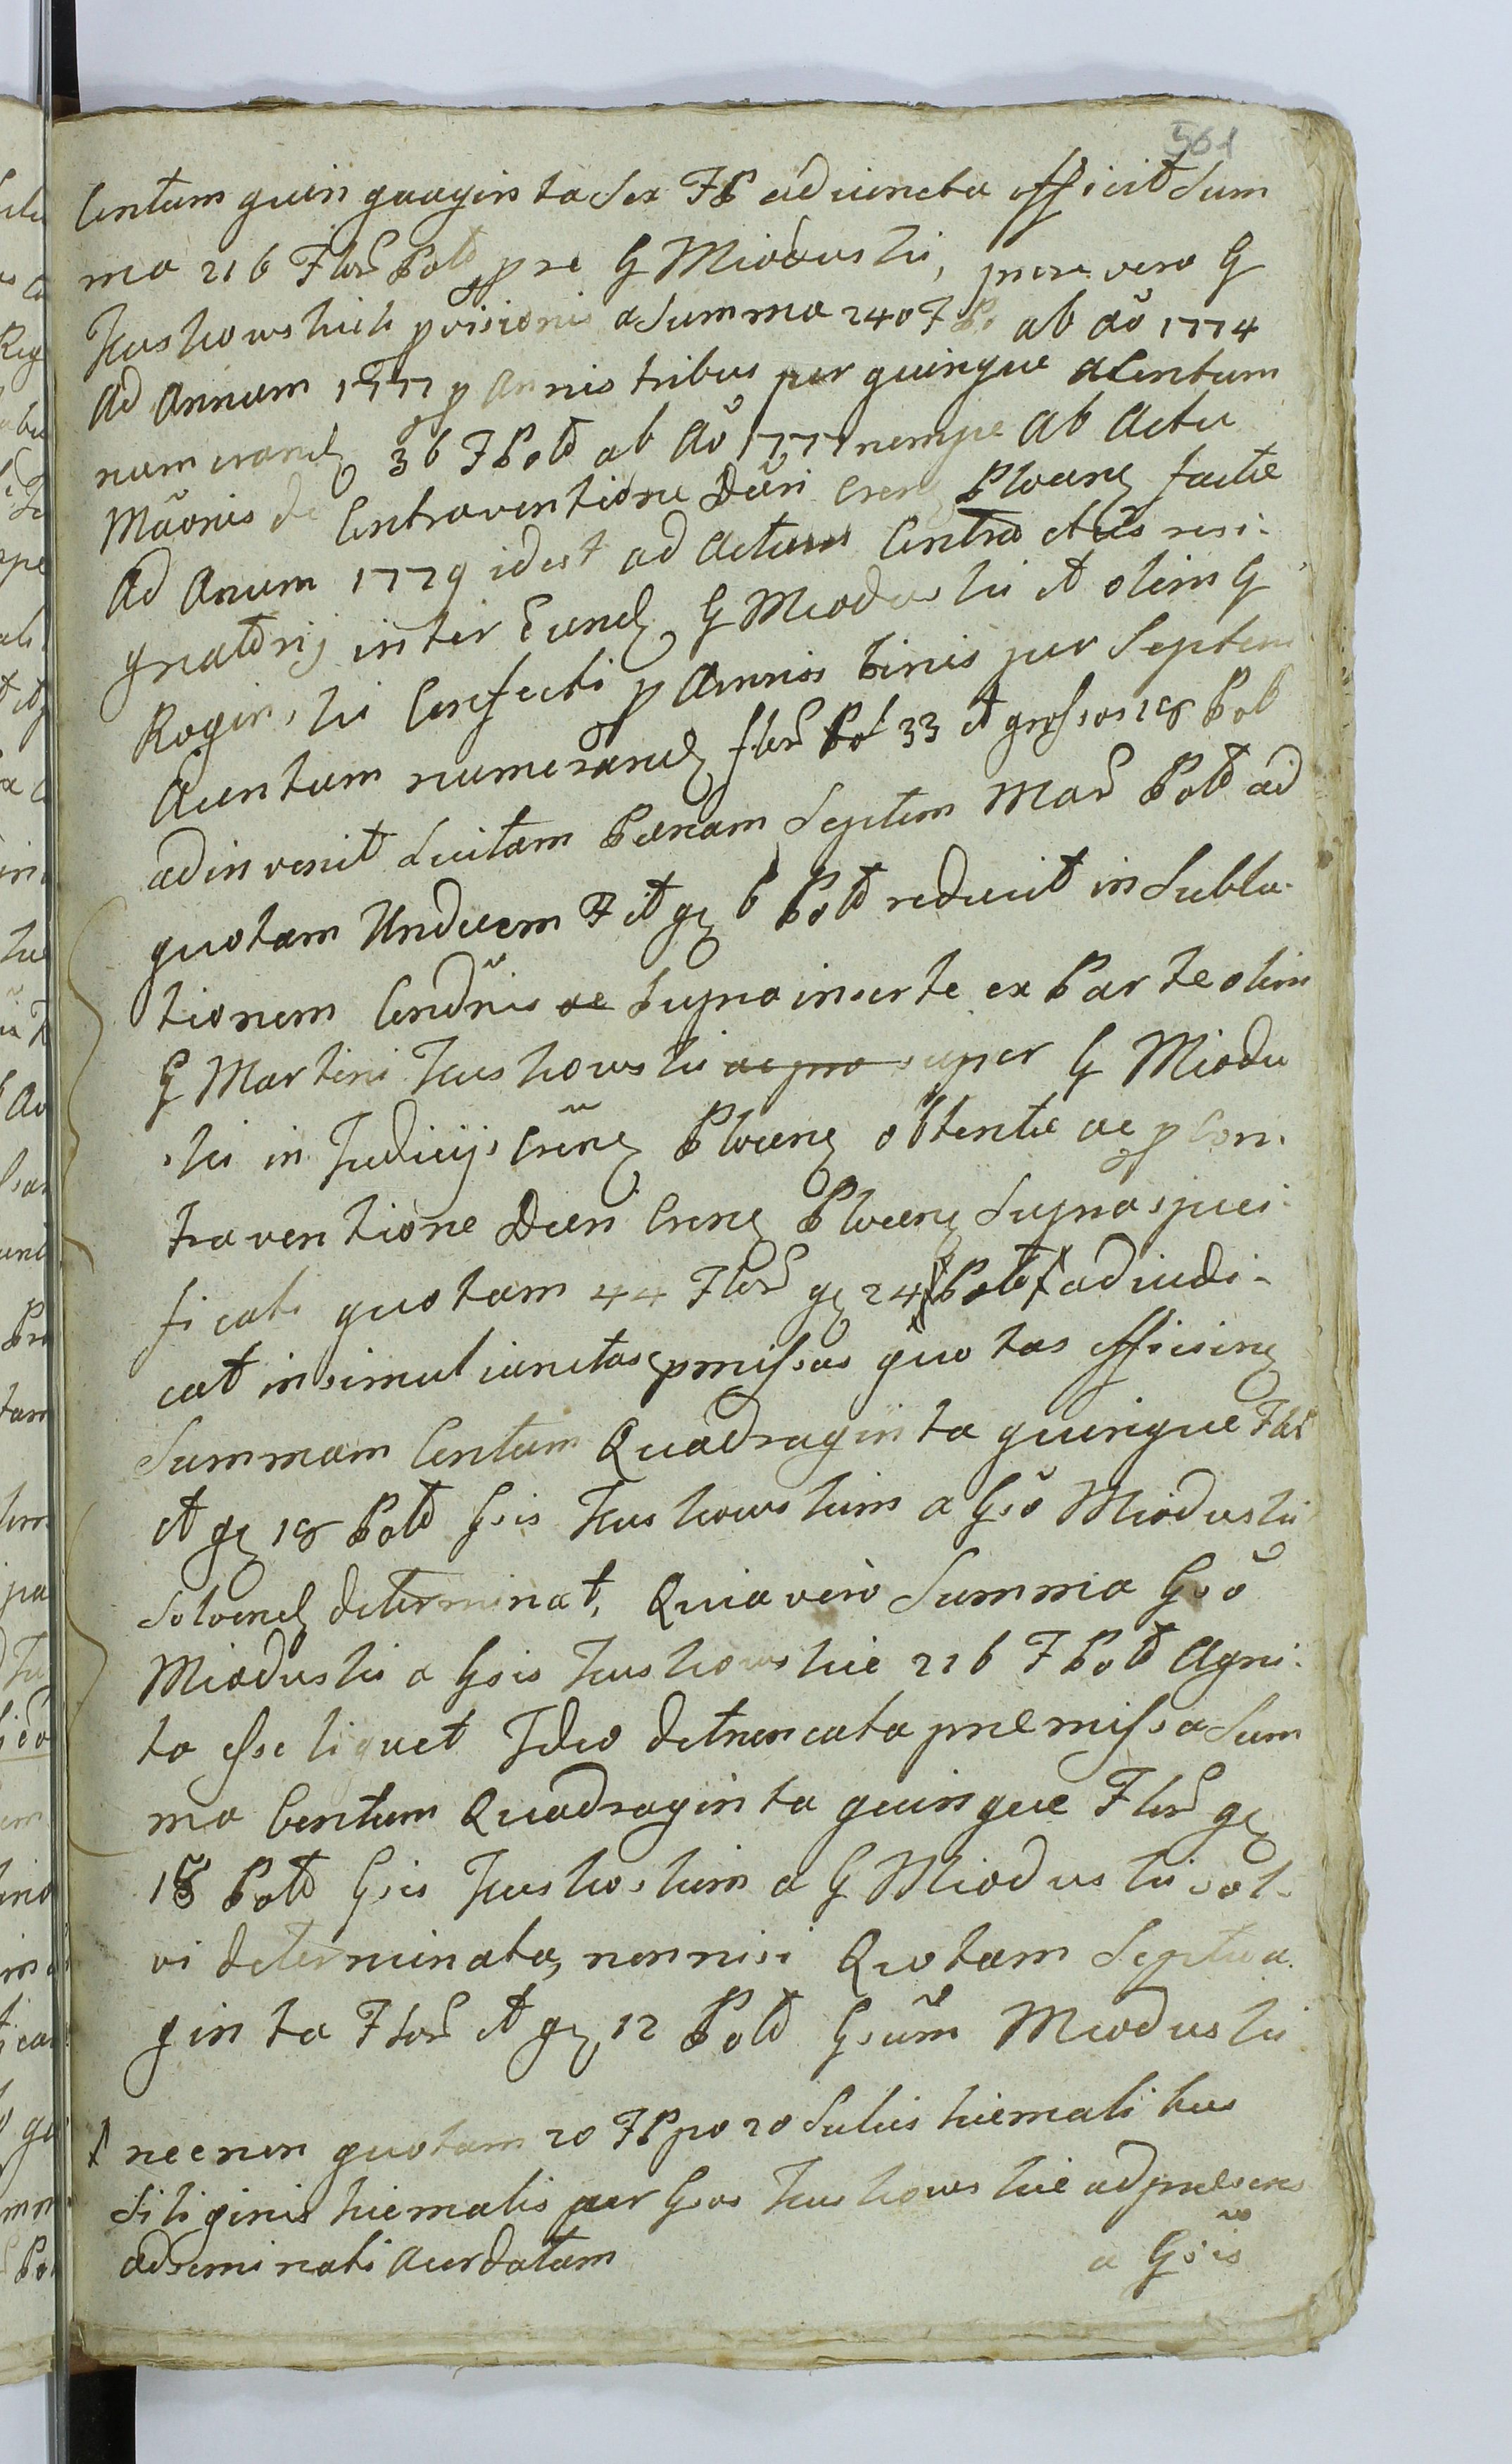 561
Centum quin quaginta sex FP adiuncta efficit Sum
ma 216 Flor Polł pre G Mioduski, prore vero G
Kuskowskich provisionis a Summa 240 F Po ab ao 1774
Ad Annum 1777 p Annis tribus per quinque a Centum
numerand 36 F Polł ab Ao 1777 nempe Ab Actu
Mãonis de Contraventione Dũri Crens Plocens factæ
Ad Anum 1779 idest ad Actum Contra ctus resi
gnatorij inter Eund G Mioduski et olim G
Rogins ki Confecti p Annos binis per Septem
A centum numerand flor Pol 33 et grossos 18 Pol
ad in venit Luitam Pænam Septem Mar Polł ad
quotam Undecem F et gs 6 Polł reducit in Subla
tionem Condñis ae Supra inserte ex Parte olim
G Martini Kuskowski ac pro super G Miodu
ski in Judicijs Crens Plocens obtentæ ac p Con
traventione Dũri Crens Plocens Supra speci
ficati quotam 44 Flor gs 24 Polł ⸸ adiudi
cat insimul iunctas pmissas quotas efficiens
Summam Centum Quadraginta quinque Flor
et gs 18 Polł Gsis Kuskowskim a Gso Mioduski
Solvend determinat, Quia vero Summa Gsõ
Mioduski a Gsis Kuskowskie 216 F Polł Agni
ta esse liquet Ideo detruncata præmissa Sum
ma Centum Quadraginta quinque Flor gs
18 Polł Gsis Kuskoskim a G Mioduski sol
vi determinata, nonnisi Quotam Septua
ginta Flor et gs 12 Polł Gsum Mioduski
⸸ necnon quotam 20 FP po 20 Sulcis hiemalibus
Siliginis hiemalis per Gsos Kuskowskie ad præsens
adseminati Accordatam
a Gsis